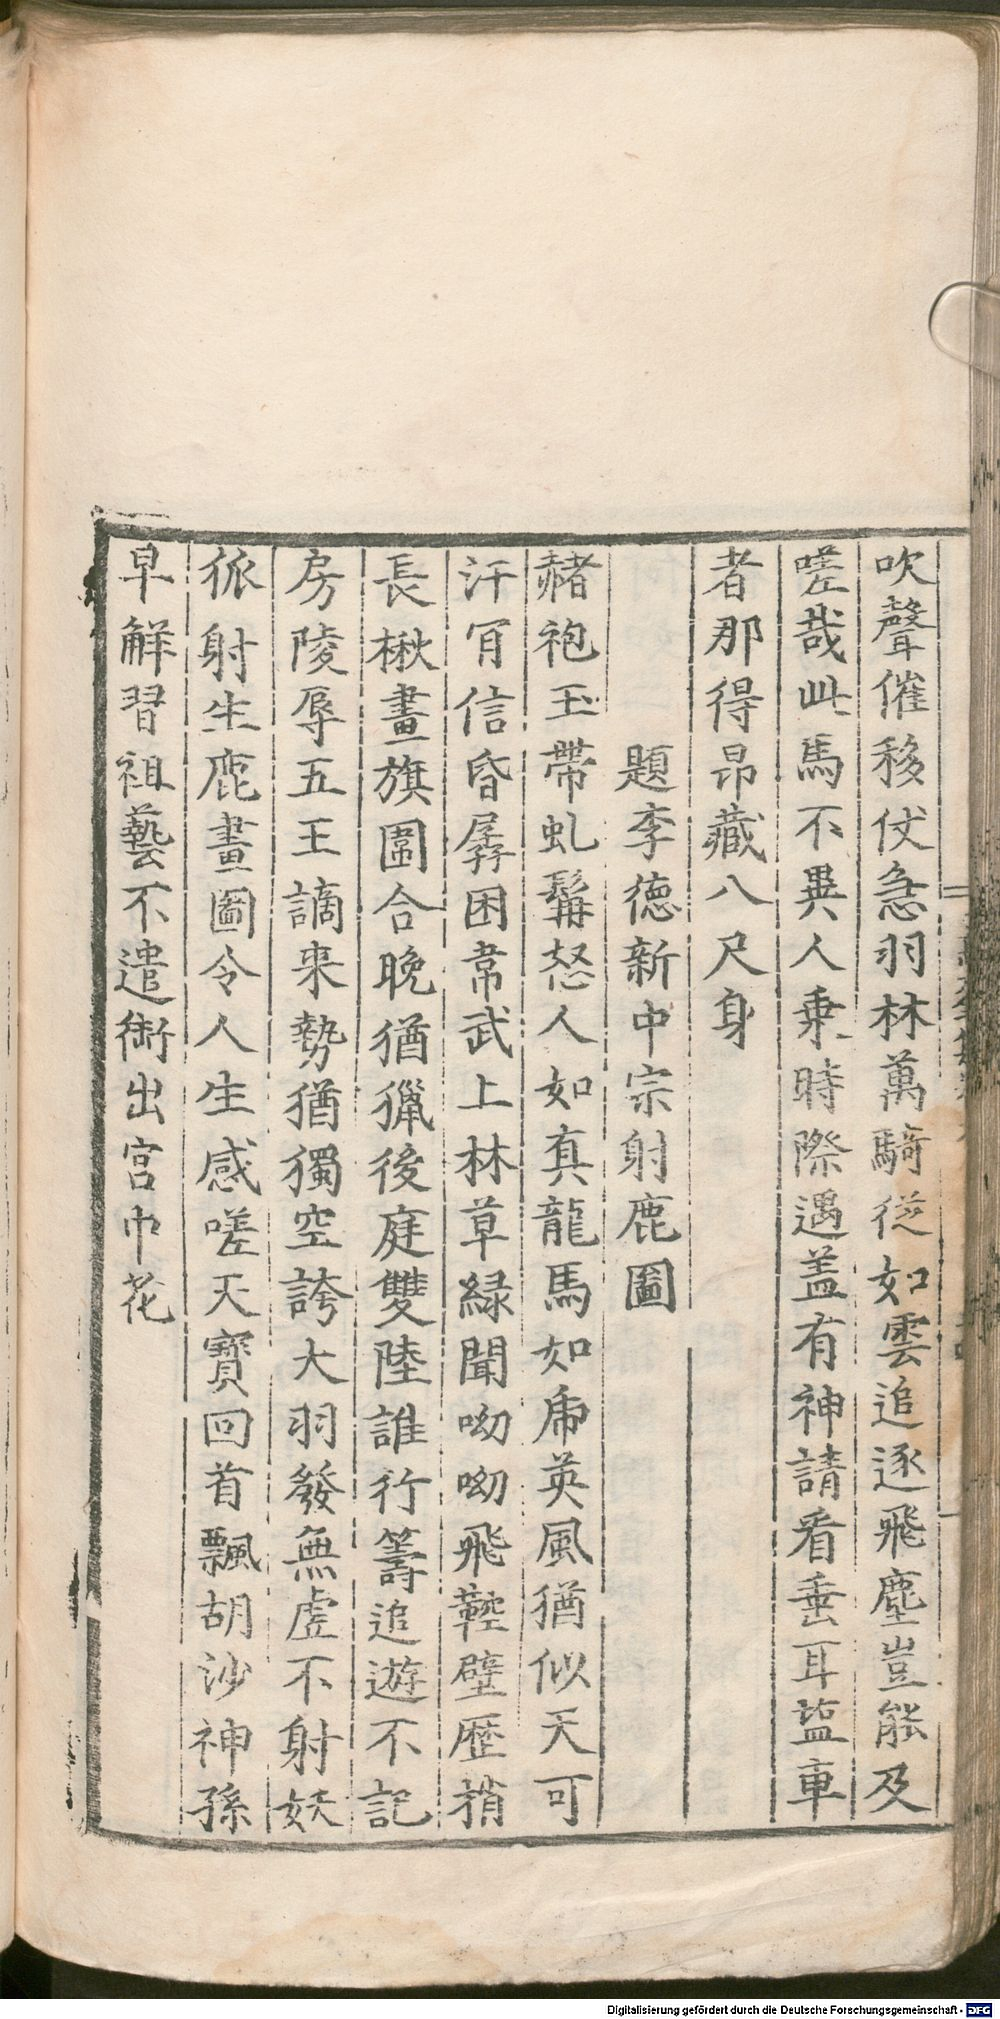 吹聲催移仗急羽林萬騎從如雲追逐飛塵豈能及
嗟哉此馬不異人乗時際遇盖有神請看垂耳塩車
者那得昂藏八尺身
題李德新中宗射鹿圖
赭袍玉帶虬髯怒人如真龍馬如虎英風猶似天可
汗肎信昏孱困韋武上林草緑聞呦呦飛鞚壁歴捎
長楸畫旗圍合晚猶獵後庭雙陸誰行籌追遊不記
房陵辱五王謫来勢猶獨空誇大羽發無虚不射妖
狐射生鹿畫圖令人生感嗟天寳回首飄胡沙神孫
早觧習祖藝不遣銜出宫中花
Digitalisierung gefördert durch die Deutsche Forschungsgemeinschaft - DFG